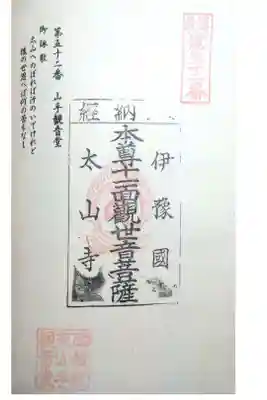 納經
伊豫國
本尊十一面觀世音菩薩
太山寺
第五十二番 山手観音堂
御詠歌
太山へのぼれば汗のいでけれど
後の世思へば何の苦もなし